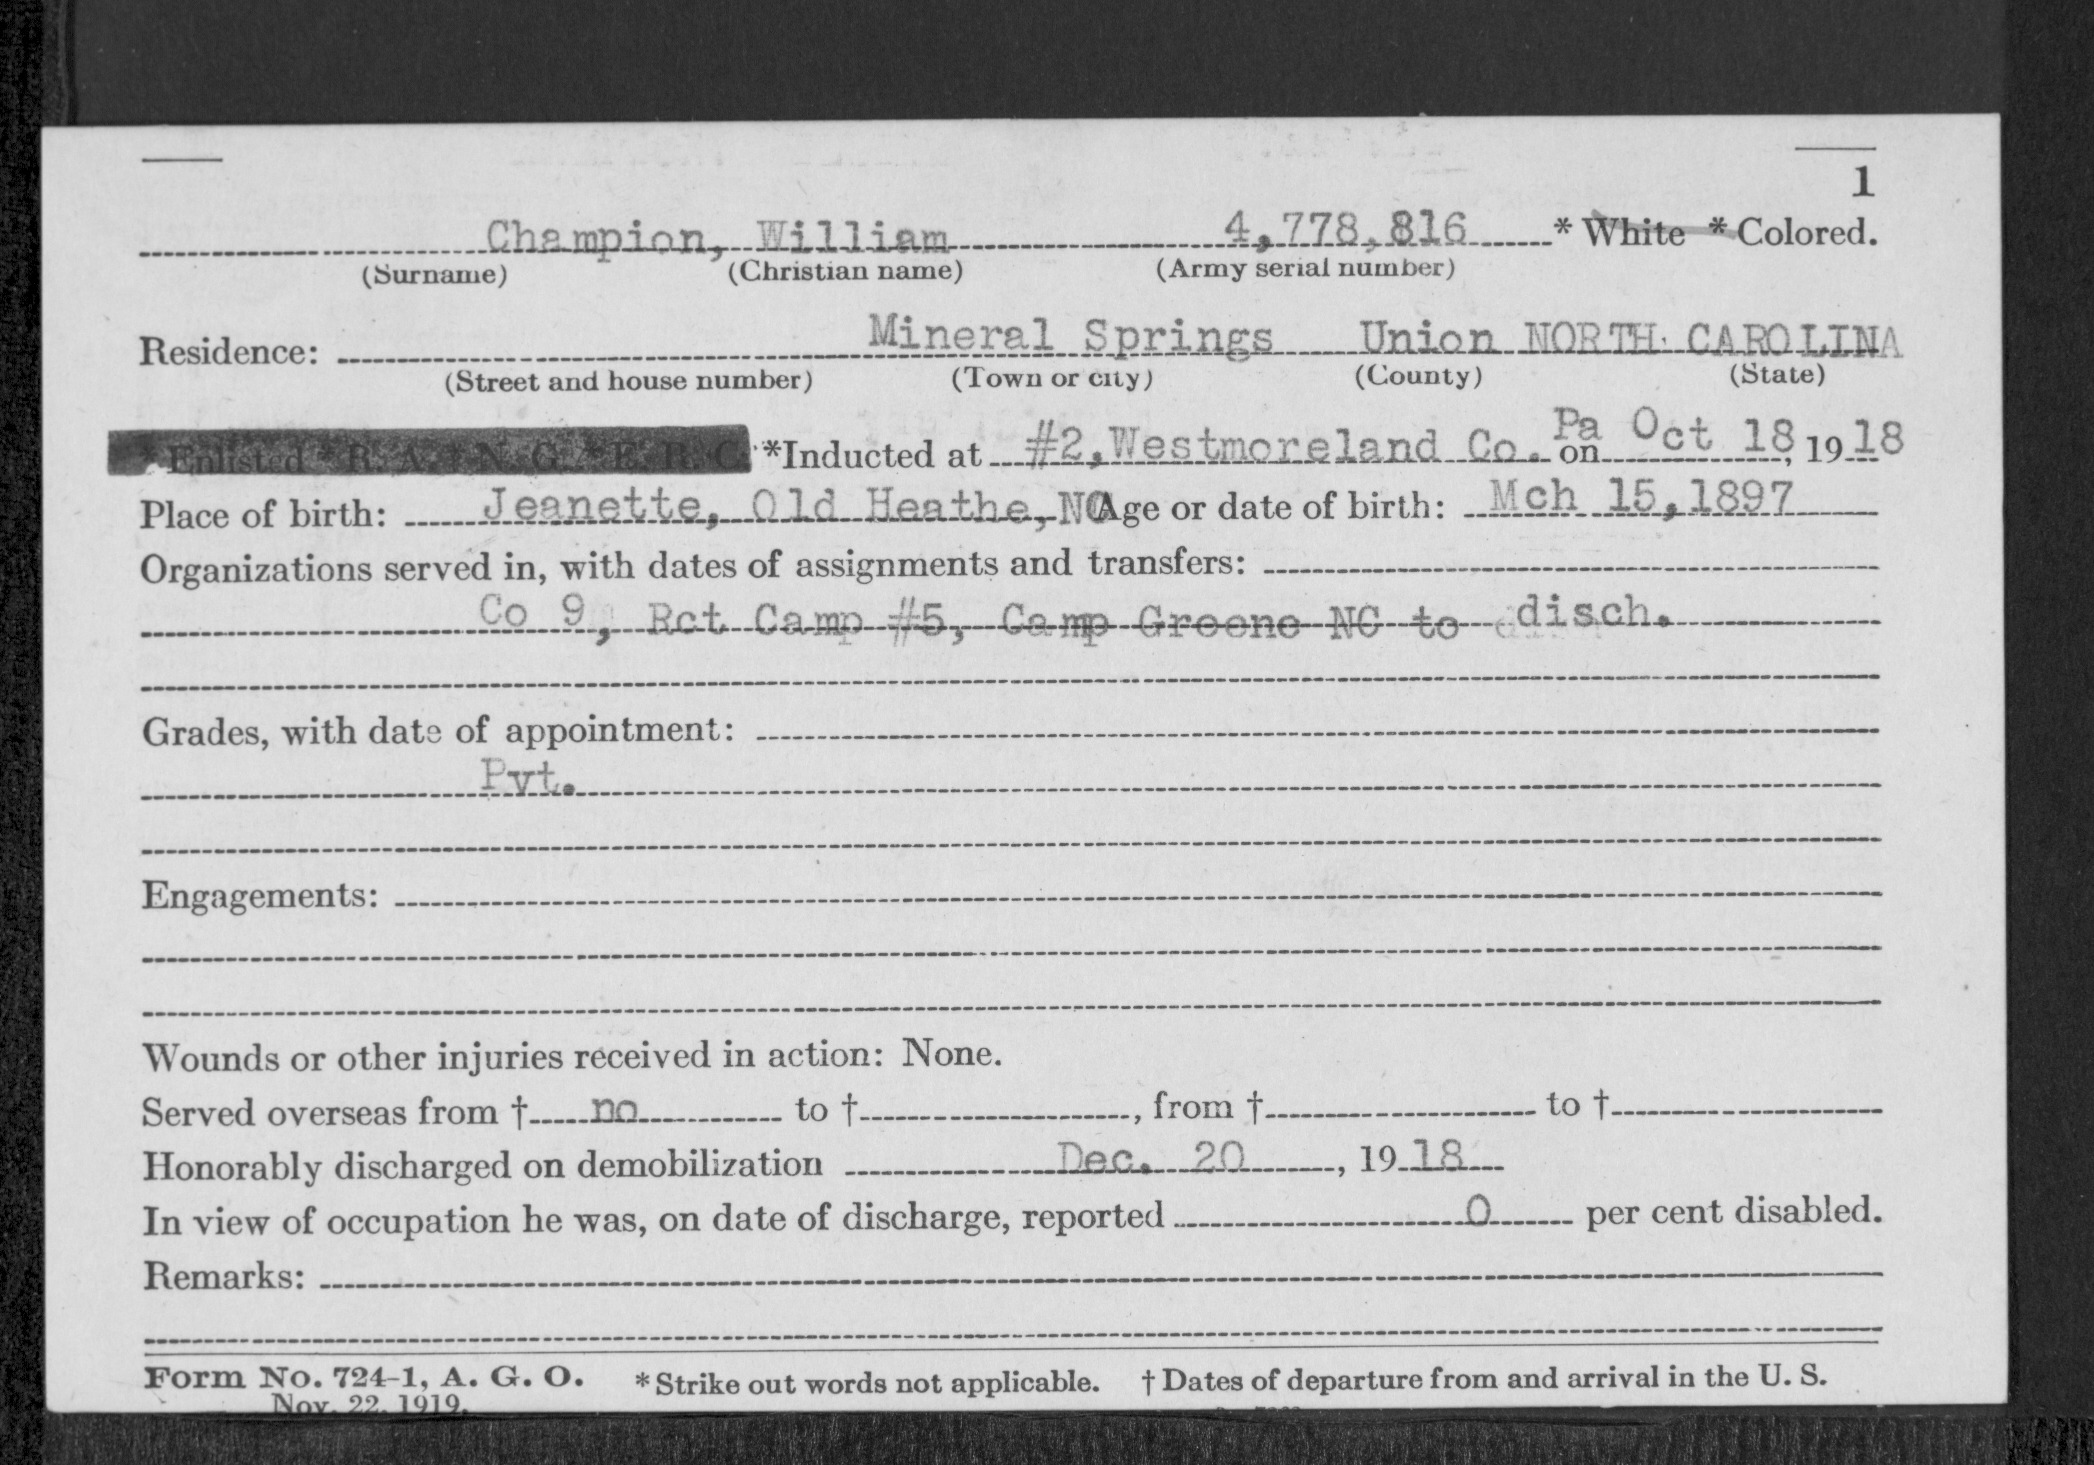 1
Champion, William 4,778,816 * White * Colored.
(Surname) (Christian name) (Army serial number)
Residence: Mineral Springs Union NORTH CAROLINA
(Street and house number) (Town or city) (County) (State)
* Enlisted * R. A. * N. G. * E. R. C. *Inducted at #2, Westmoreland Co. Pa on Oct 18, 1918
Place of birth: Jeanette, Old Heathe, NC Age or date of birth: Mch 15, 1897
Organizations served in, with dates of assignments and transfers:
Co 9, Rct Camp #5, Camp Greene NC to disch.
Grades, with date of appointment:
Pvt.
Engagements:
Wounds or other injuries received in action: None.
Served overseas from † no to †, from † to †
Honorably discharged on demobilization Dec. 20, 1918
In view of occupation he was, on date of discharge, reported 0 per cent disabled.
Remarks:
Form No. 724-1, A. G. O. *Strike out words not applicable. † Dates of departure from and arrival in the U. S.
Nov. 22, 1919.